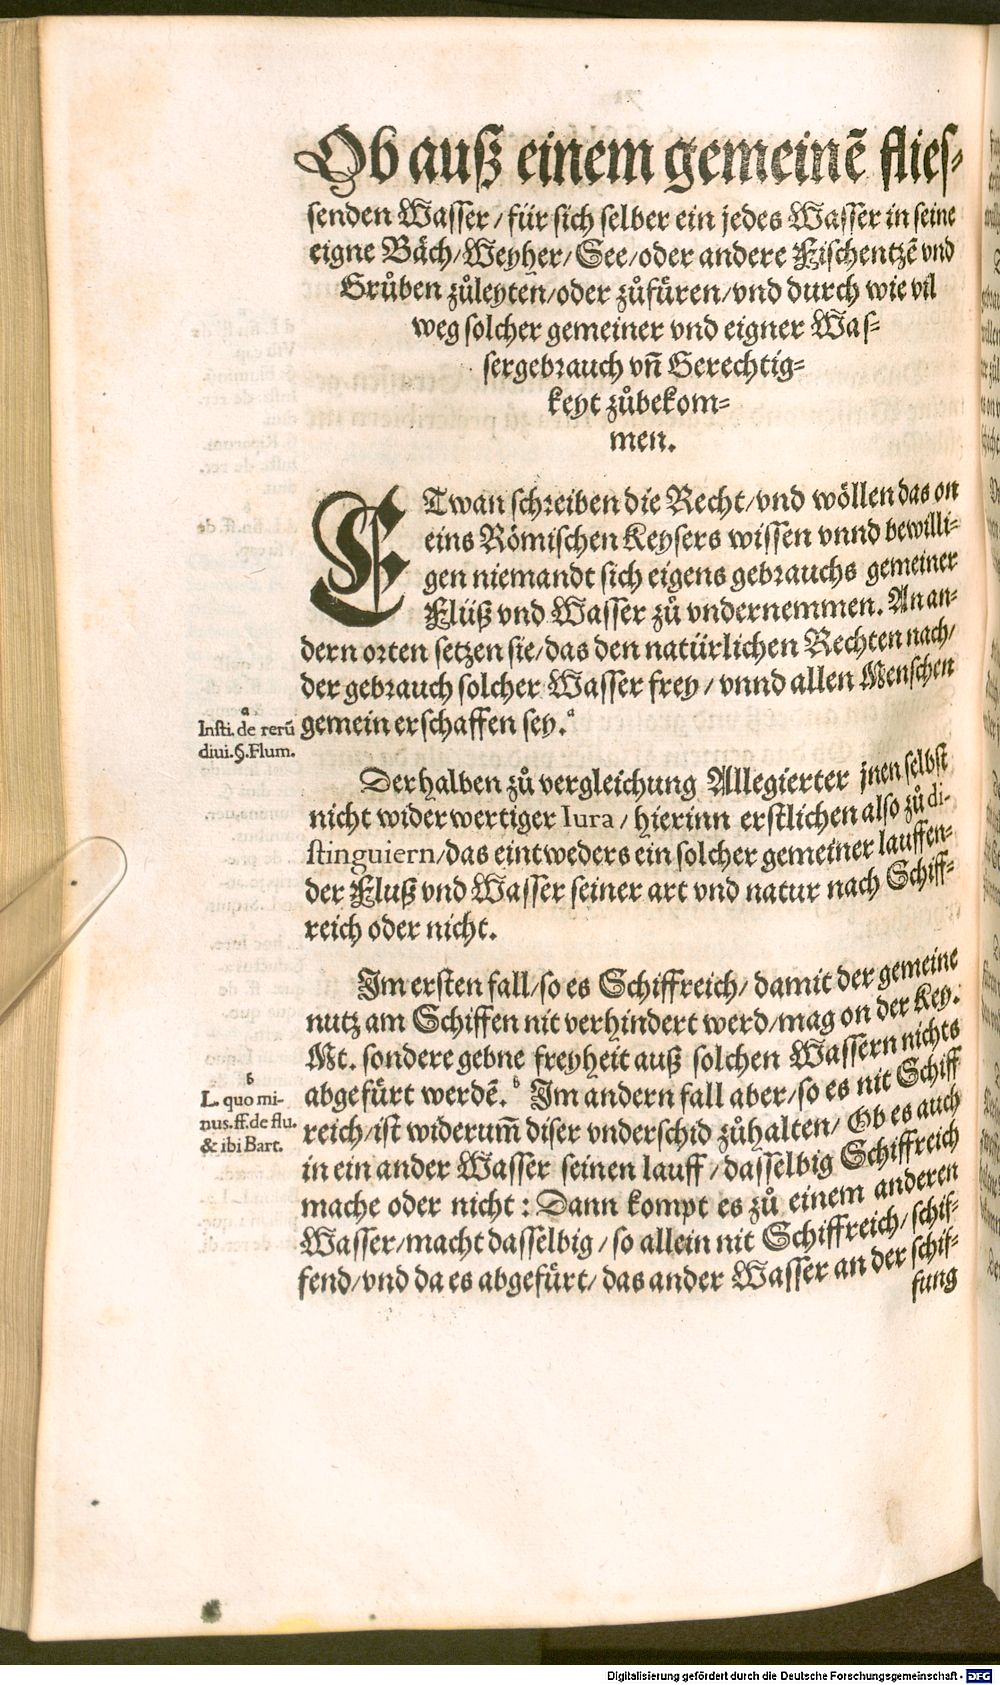 Ob auß einem gemeinẽ flies-
senden Wasser / für sich selber ein jedes Wasser in seine
eigne Bäch / Weyher / See / oder andere Fischentzẽ vnd
Grůben zůleyten / oder zůfüren / vnd durch wie vil
weg solcher gemeiner vnd eigner Was-
sergebrauch vñ Gerechtig-
keyt zůbekom-
men.
ETwan schreiben die Recht / vnd wöllen das on
eins Römischen Keysers wissen vnnd bewilli-
gen niemandt sich eigens gebrauchs gemeiner
Flüß vnd Wasser zů vndernemmen. An an-
dern orten setzen sie / das den natürlichen Rechten nach /
der gebrauch solcher Wasser frey / vnnd allen Menschen
gemein erschaffen sey. a
a
Insti. de rerũ
diui. §. Flum.
Derhalben zů vergleichung Allegierter jnen selbst
nicht widerwertiger Iura / hierinn erstlichen also zů di-
stinguiern / das eintweders ein solcher gemeiner lauffen-
der Fluß vnd Wasser seiner art vnd natur nach Schiff-
reich oder nicht.
Im ersten fall / so es Schiffreich / damit der gemeine
nutz am Schiffen nit verhindert werd / mag on der Key.
Mt. sondere gebne freyheit auß solchen Wassern nichts
abgefürt werdẽ. b Im andern fall aber / so es nit Schiff
reich / ist widerum̃ diser vnderschid zůhalten / Ob es auch
in ein ander Wasser seinen lauff / dasselbig Schiffreich
mache oder nicht : Dann kompt es zů einem anderen
Wasser / macht dasselbig / so allein nit Schiffreich / schif-
fend / vnd da es abgefürt / das ander Wasser an der schif-
fung
b
L. quo mi-
nus. ff. de flu.
& ibi Bart.
Digitalisierung gefördert durch die Deutsche Forschungsgemeinschaft - DFG